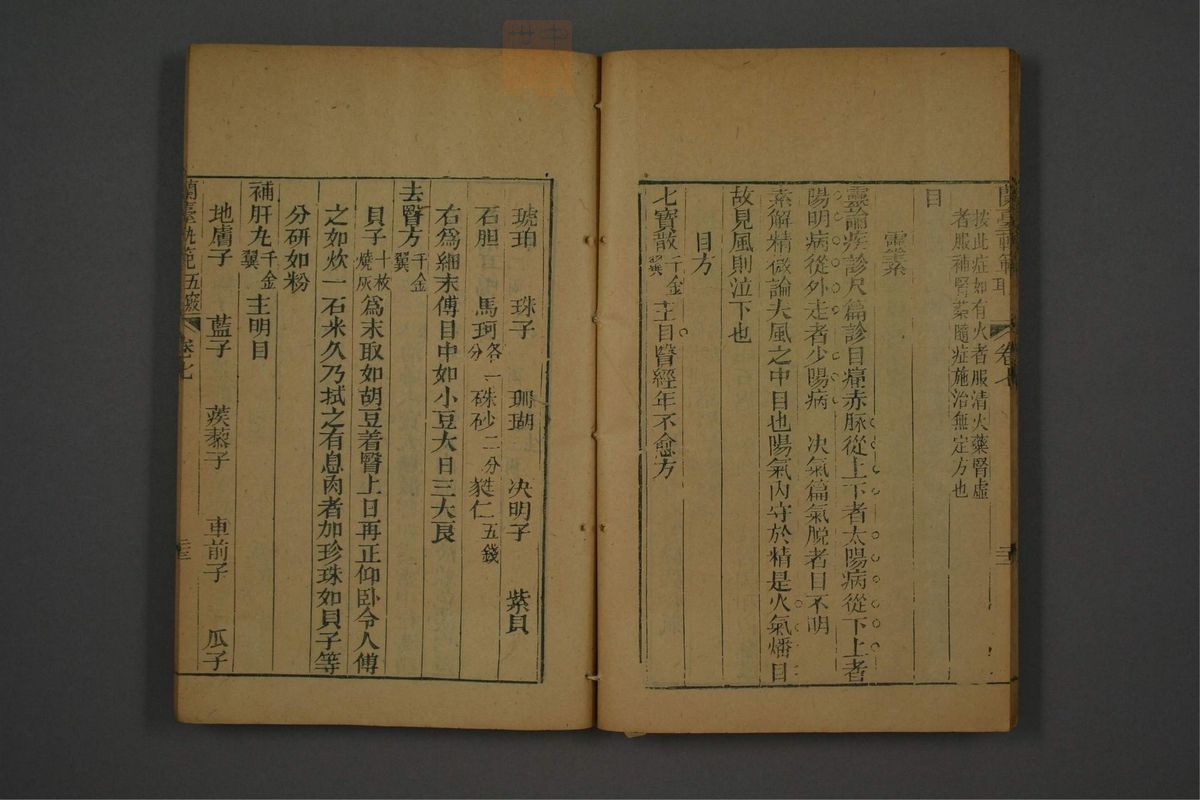 蘭臺軌範 耳 卷七 三
按此症如有火者服清火藥腎虛
者服補腎藥隨症施治無定方也
目
靈素
靈論疾診尺篇診目痛赤脈從上下者太陽病從下上者
陽明病從外走者少陽病 決氣篇氣脫者目不明
素解精微論夫風之中目也陽氣內守於精是火氣燔目
故見風則泣下也
目方
七寶散千金翼主目瞖經年不愈方
琥珀 珠子 珊瑚 决明子 紫貝
石胆 馬珂各一分 硃砂二分 蕤仁五錢
右爲細末傅目中如小豆大日三大良
去瞖方千金翼
貝子十枚燒灰爲末取如胡豆着瞖上日再正仰卧令人傅
之如炊一石米久乃拭之有息肉者加珍珠如貝子等
分研如粉
補肝丸千金翼主明目
地膚子 藍子 蒺藜子 車前子 瓜子
蘭臺軌範 卷七